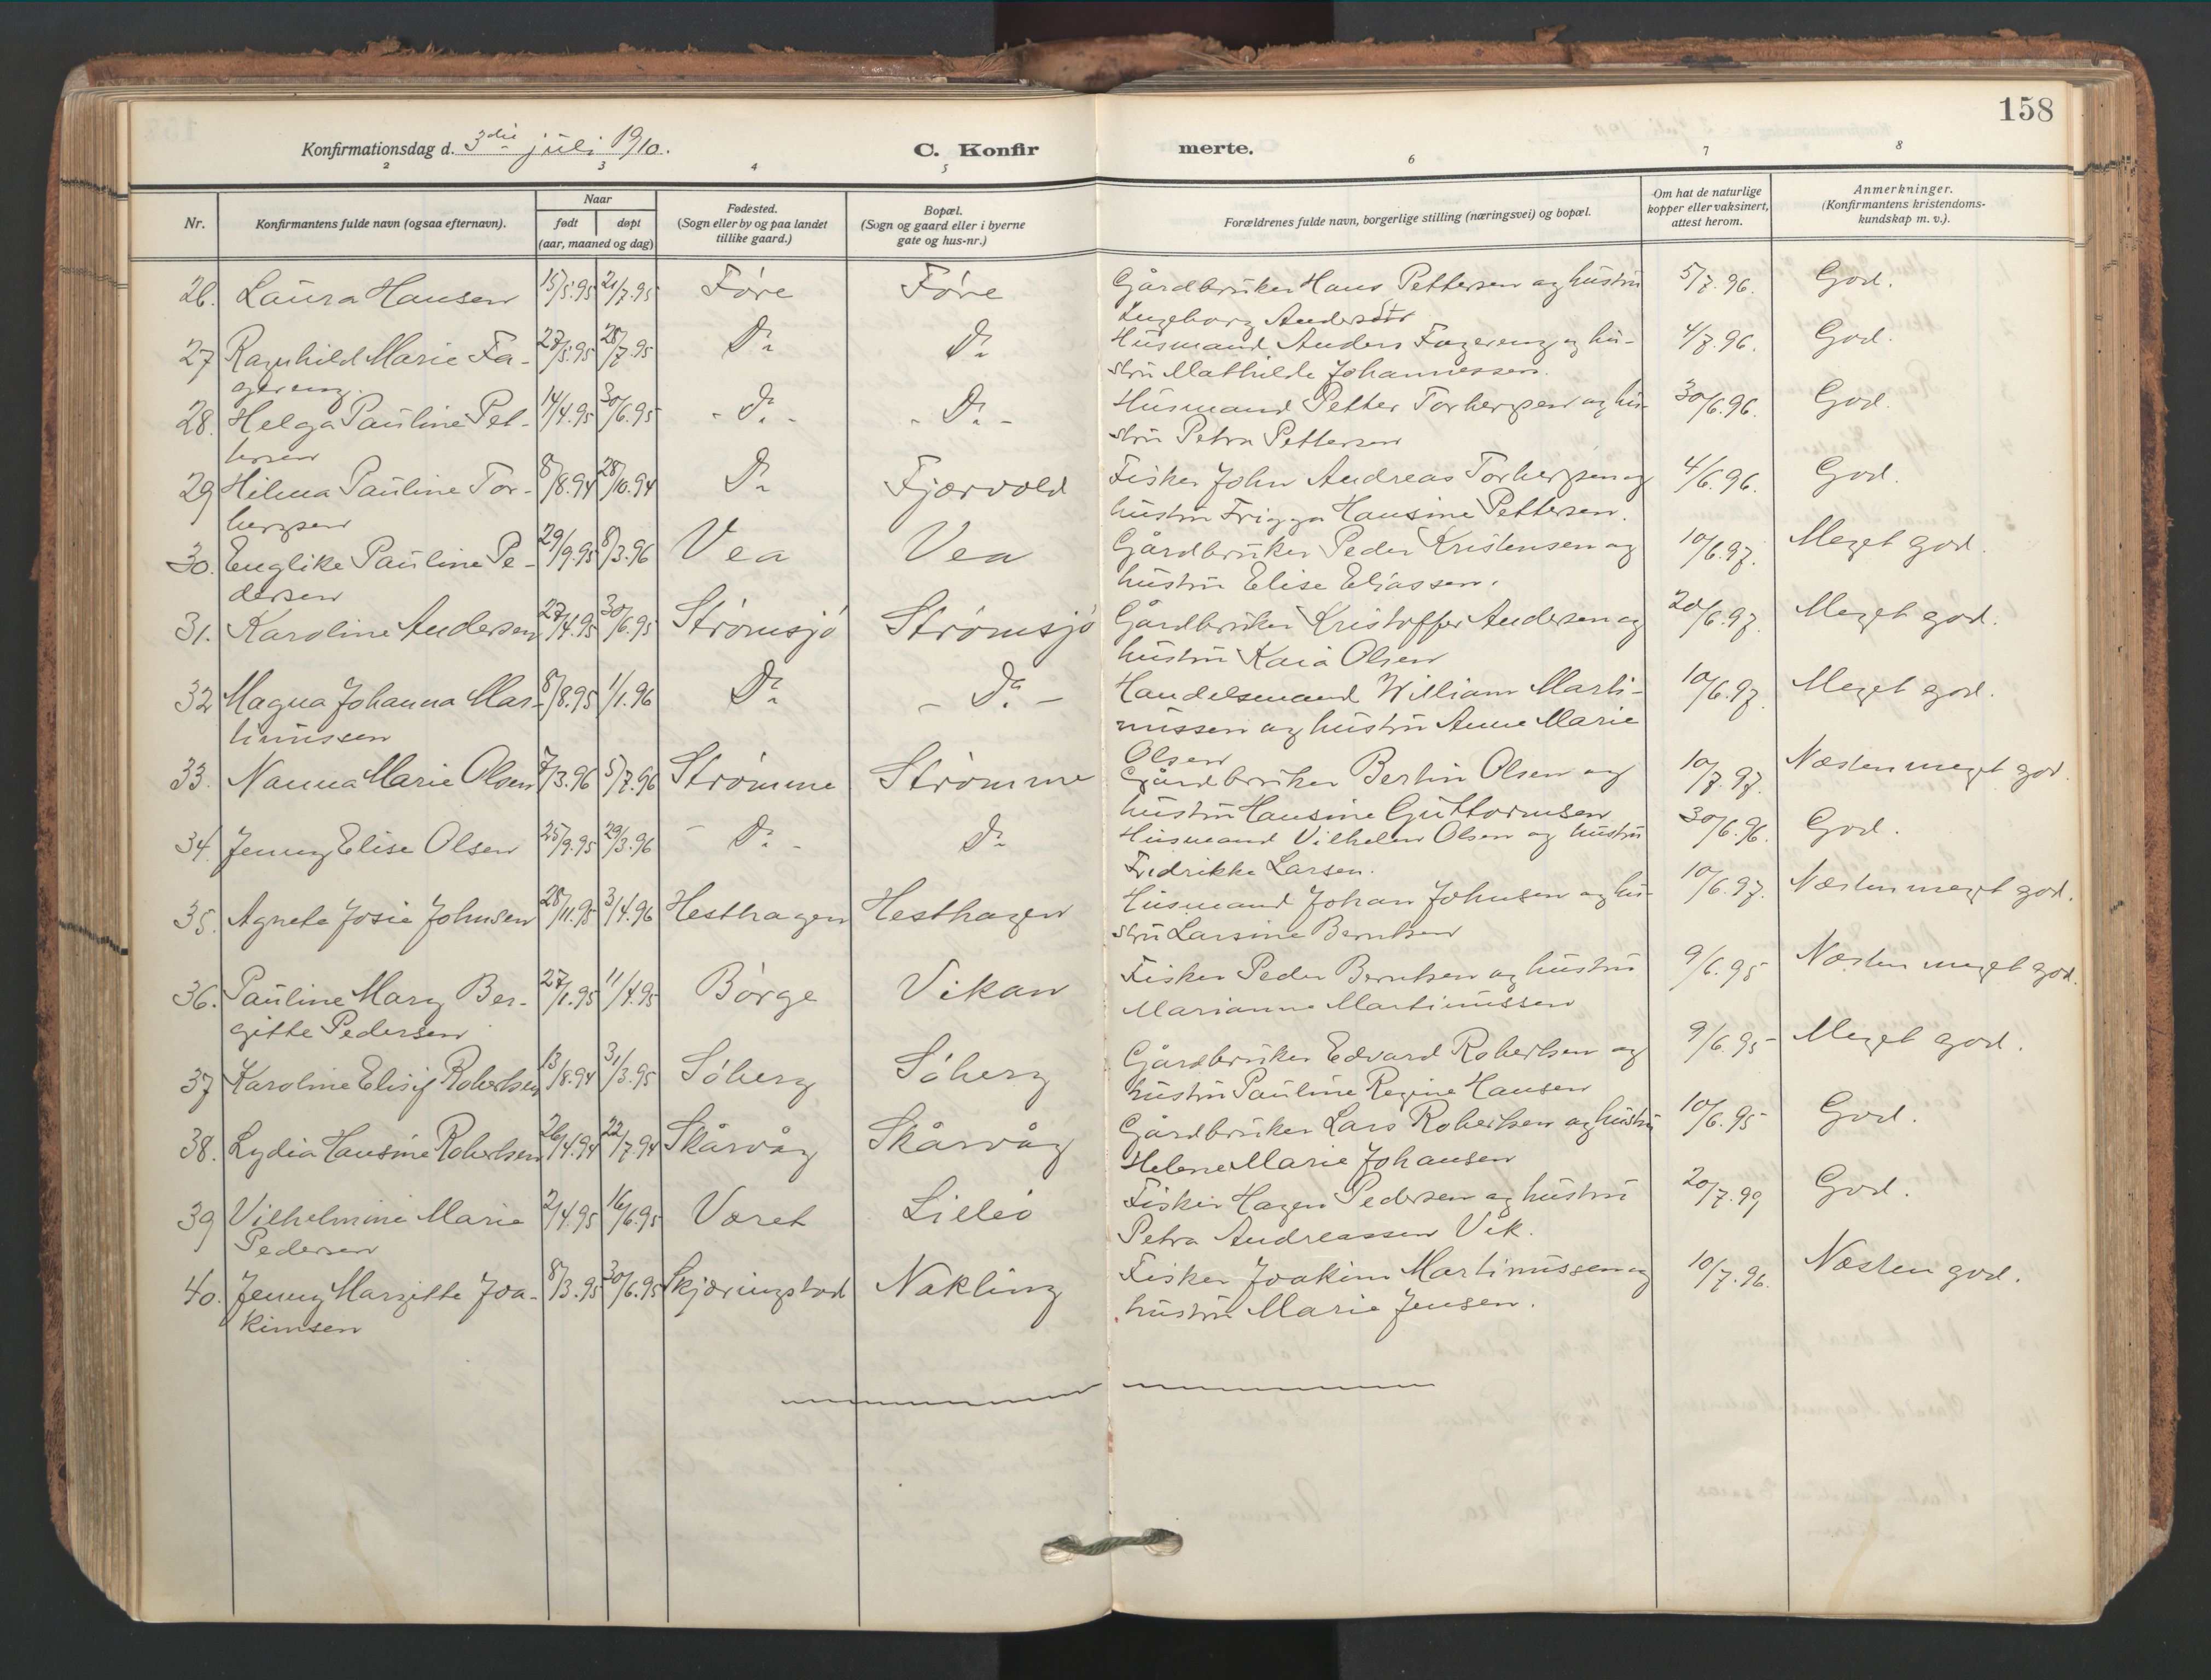 158
Konfirmationsdag d. 3die juli 1910.
C. Konfirmerte.
2 3 4 5 6 7 8
Nr. Konfirmantens fulde navn (ogsaa efternavn). Naar født døpt (aar, maaned og dag) Fødested. (Sogn eller by og paa landet tillike gaard.) Bopæl. (Sogn og gaard eller i byerne gate og hus-nr.) Forældrenes fulde navn, borgerlige stilling (næringsvei) og bopæl. Om hat de naturlige kopper eller vaksinert, attest herom. Anmerkninger. (Konfirmantens kristendoms-kundskap m. v.).
26. Laura Hansen 15/5.95 21/7.95 Føre Føre Gårdbruker Hans Pettersen og hustru 5/7.96. God.
Ingeborg Andersdtr
27 Ragnhild Marie Fa- 27/5.95 28/7.95 Do Do Husmand Anders Fagereng og hu- 4/7.96. God.
gereng. stru Mathilde Johannessen.
28. Helga Pauline Pet- 14/4.95 30/6.95 - Do - - Do - Husmand Petter Torbergsen og hu- 30/6.96. God.
tersen stru Petra Pettersen
29 Hilma Pauline Tor- 8/8.94 28/10.94 Do Fjærvold Fisker John Andreas Torbergsen og 4/6.96. God.
bergsen hustru Frigga Hansine Pettersen.
30. Englike Pauline Pe- 29/9.95 8/3.96 Vea Vea Gårdbruker Peder Kristensen og 10/6.97. Meget god.
dersen hustru Elise Eliassen.
31. Karoline Andersen 27/4.95 30/6.95 Strømsjö Strømsjö Gårdbruker Kristoffer Andersen og 20/6.97. Meget god.
hustru Kaia Olsen
32 Magna Johanna Mar- 8/8.95 1/1.96 Do - Do - Handelsmand William Marti- 10/6.97. Meget god.
tinussen nussen og hustru Anne Marie
Olsen
33. Nanna Marie Olsen 7/3.96 5/7.96 Strømme Strømme Gårdbruker Bertin Olsen og 10/7.97. Næsten meget god.
hustru Hansine Guttormsen
34. Jenny Elise Olsen 25/9.95 29/3.96 - Do - Do Husmand Vilhelm Olsen og hustru 30/6.96. God.
Fredrikke Larsen.
35. Agnete Josie Johnsen 28/11.95 3/4.96 Hesthagen Hesthagen Husmand Johan Johnsen og hu- 10/6.97. Næsten meget god.
stru Larsine Berntsen
36. Pauline Mary Ber- 27/1.95 11/4.95 Börge Vikan Fisker Peder Berntsen og hustru 9/6.95 Næsten meget god.
gitte Pedersen Marianne Martinussen
37 Karoline Elisif Robertsen 13/8.94 31/3.95 Söberg Söberg Gårdbruker Edvard Robertsen og 9/6.95 Meget god.
hustru Pauline Regine Hansen
38. Lydia Hansine Robertsen 26/4.94 22/7.94 Skårvåg Skårvåg Gårdbruker Lars Robertsen og hustru 10/6.95 God.
Helene Marie Johansen
39 Vilhelmine Marie 2/4.95 16/6.95 Været Lilleö Fisker Hagen Pedersen og hustru 20/7.99 God.
Pedersen Petra Andreassen Vik.
40. Jenny Margitte Joa- 8/3.95 30/6.95 Skjæringstad Nakling Fisker Joakim Martinussen og 10/7.96. Næsten god.
kimsen hustru Marie Jensen.